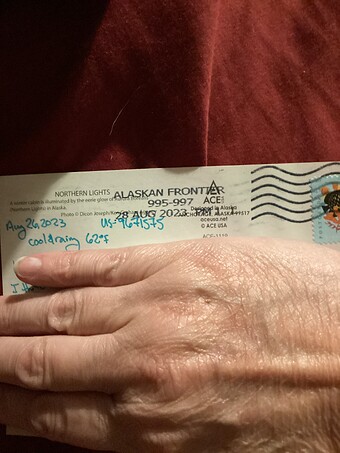 NORTHERN LIGHTS
A winter cabin is illuminated by the eerie glow of
(Northern Lights) in Alaska.
Photo © Dicon Joseph
ALASKAN FRONTIER
995-997
28 AUG 2023
ACE
Designed in Alaska
ANCHORAGE, ALASKA 99517
aceusa.net
© ACE USA
Aug 26, 2023 US-9671575
cool & rainy 62°F